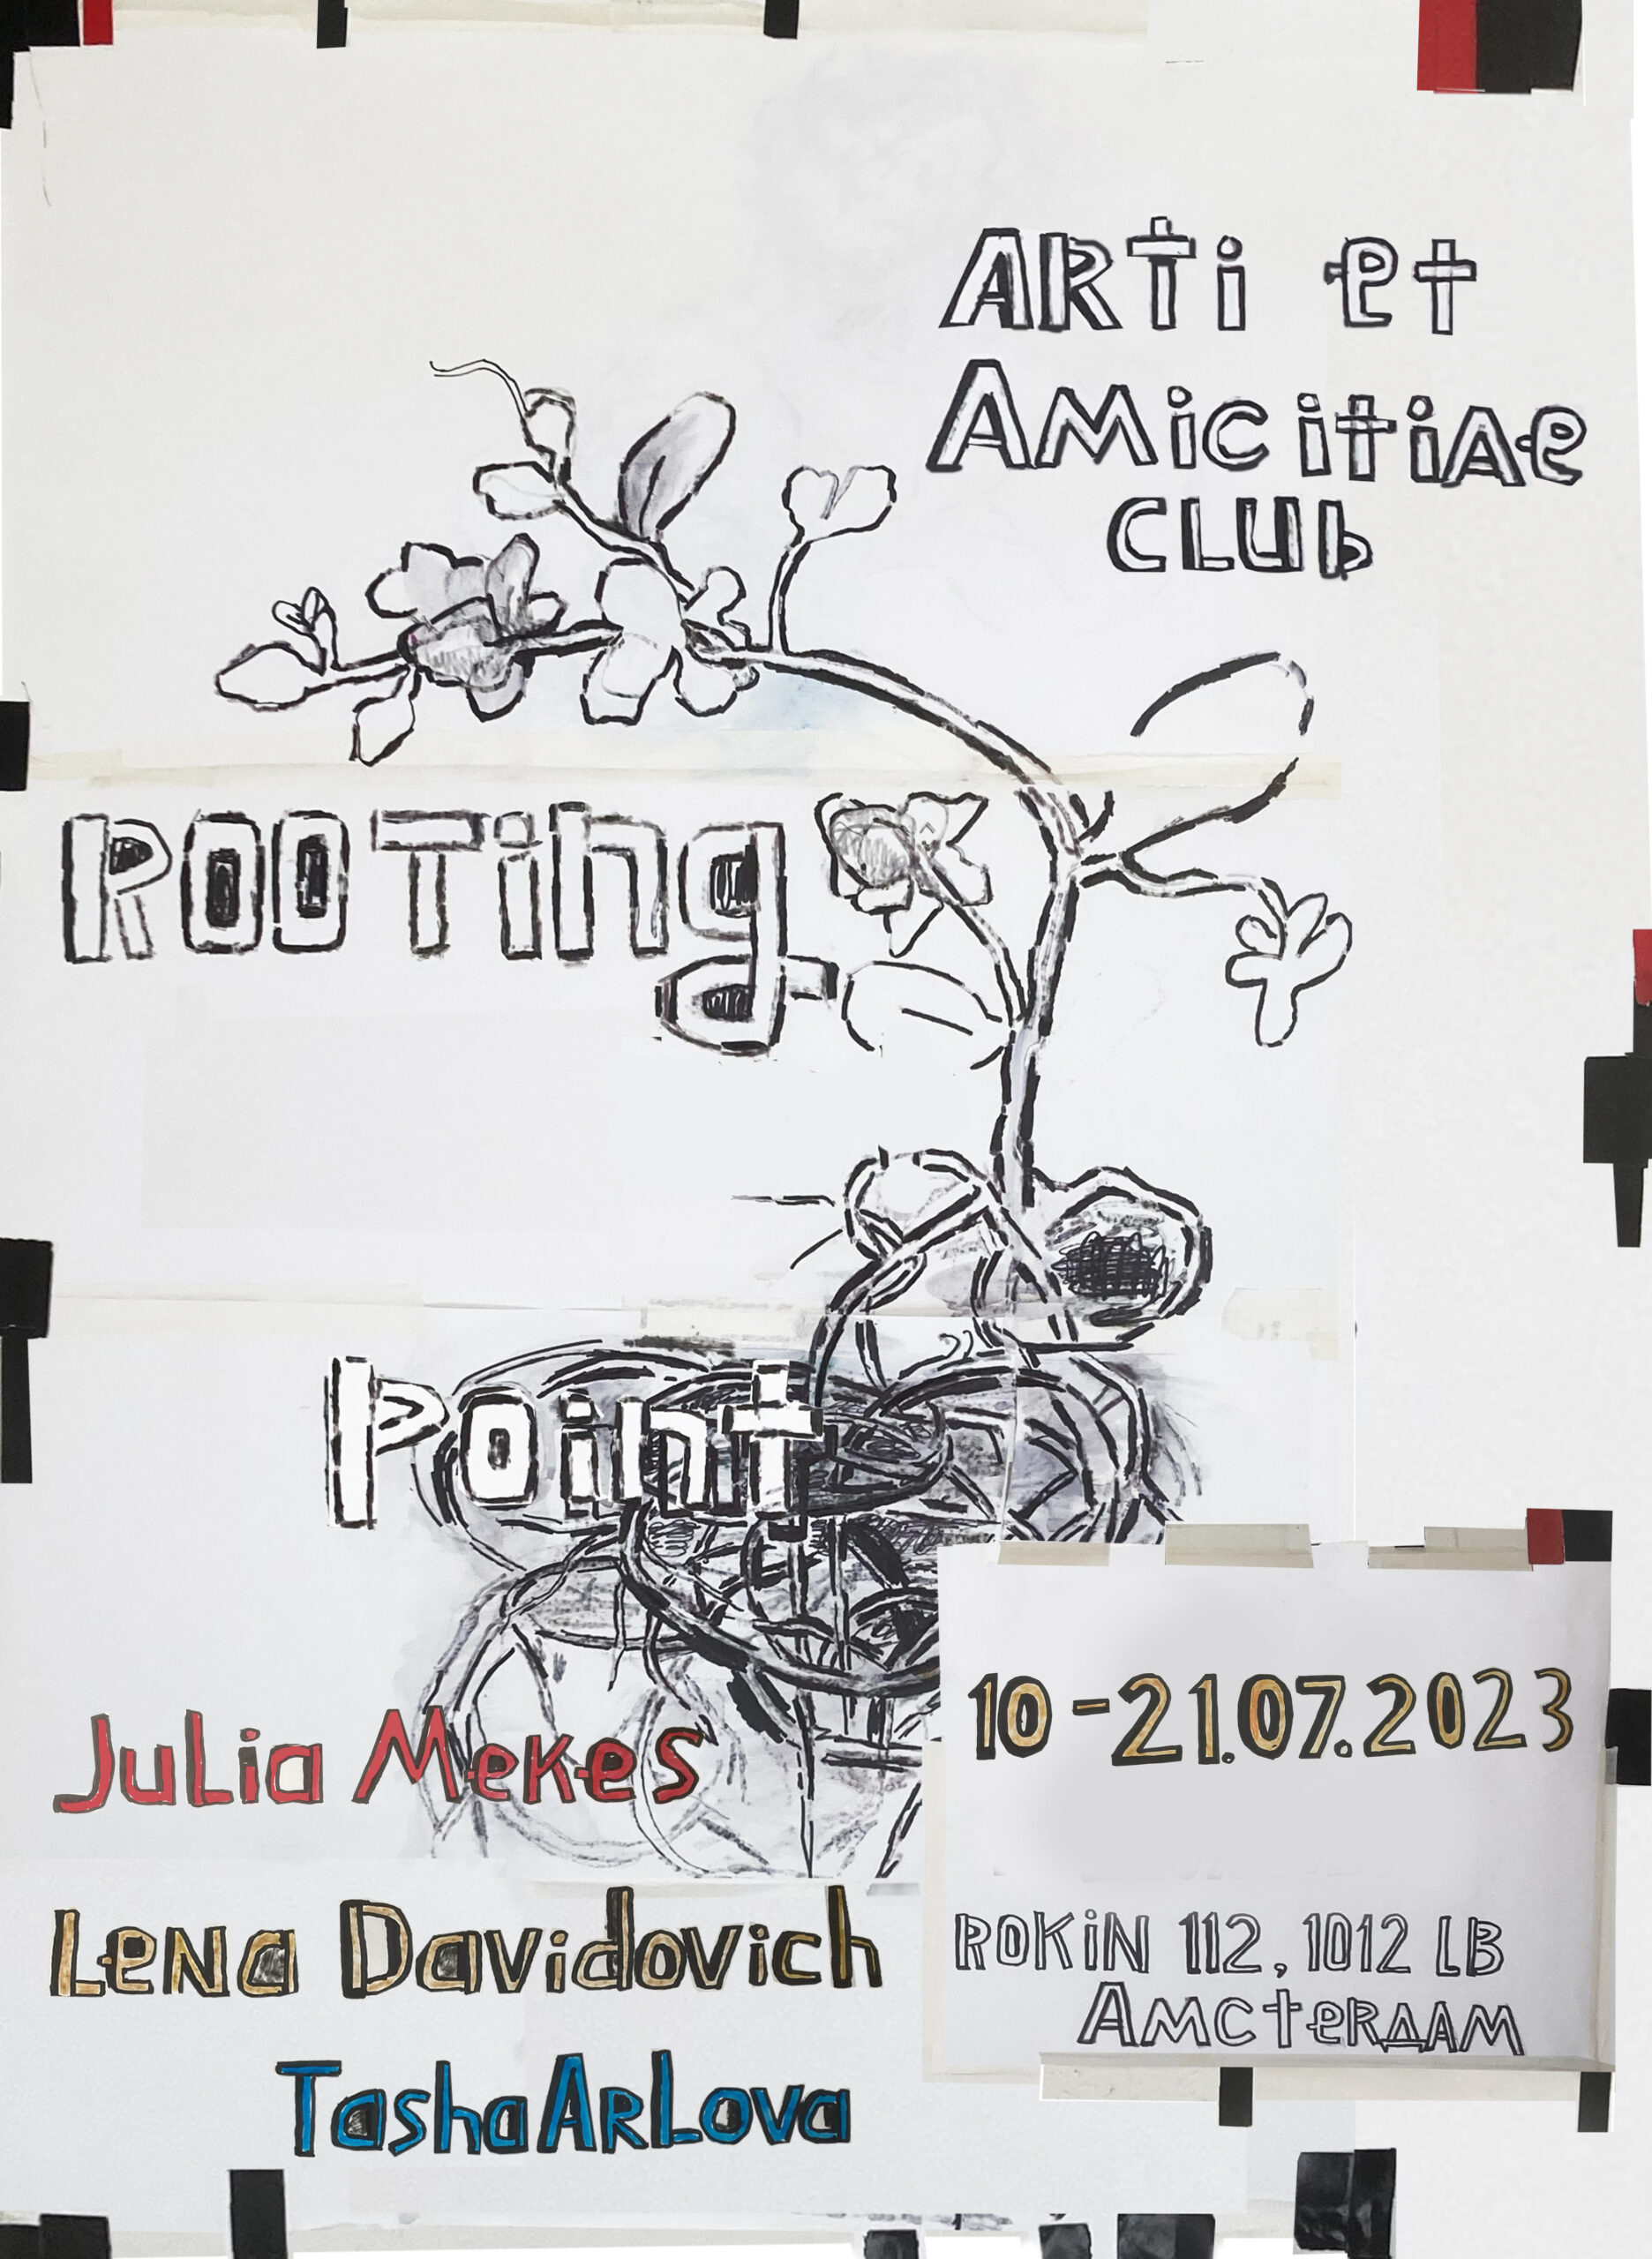 ARTi et
AMicitiAe
CLUb
ROOTing
Point
JuLia Mekes
LeNa Davidovich
Tasha ArLova
10-21.07.2023
ROKiN 112, 1012 LB
AMCteRДAM